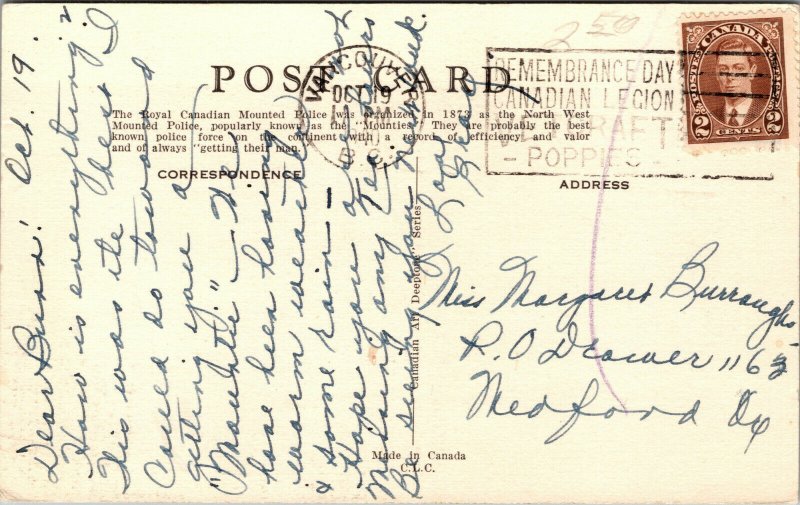 POST CARD
The Royal Canadian Mounted Police was organized in 1873 as the North West
Mounted Police, popularly known as the "Mounties". They are probably the best
known police force on the continent with a record of efficiency and valor
and of always "getting their man."
CORRESPONDENCE
ADDRESS
VANCOUVER
OCT 19
B.C.
REMEMBRANCE DAY
CANADIAN LEGION
POPPIES
CANADA
POSTES POSTAGE
2 CENTS 2
250
Oct. 19.
Dear Burr!
How is everything?
This was the best I
could do toward
getting you a
"Mountie" - We
have been having
warm weather
& some rain -
Hope you are not
Making any Tea.
Be seeing you
Love
Miss Margaret Burroughs
P.O Drawer 1163
Medford Or
Canadian Art Deeptone Series
Made in Canada
C.L.C.